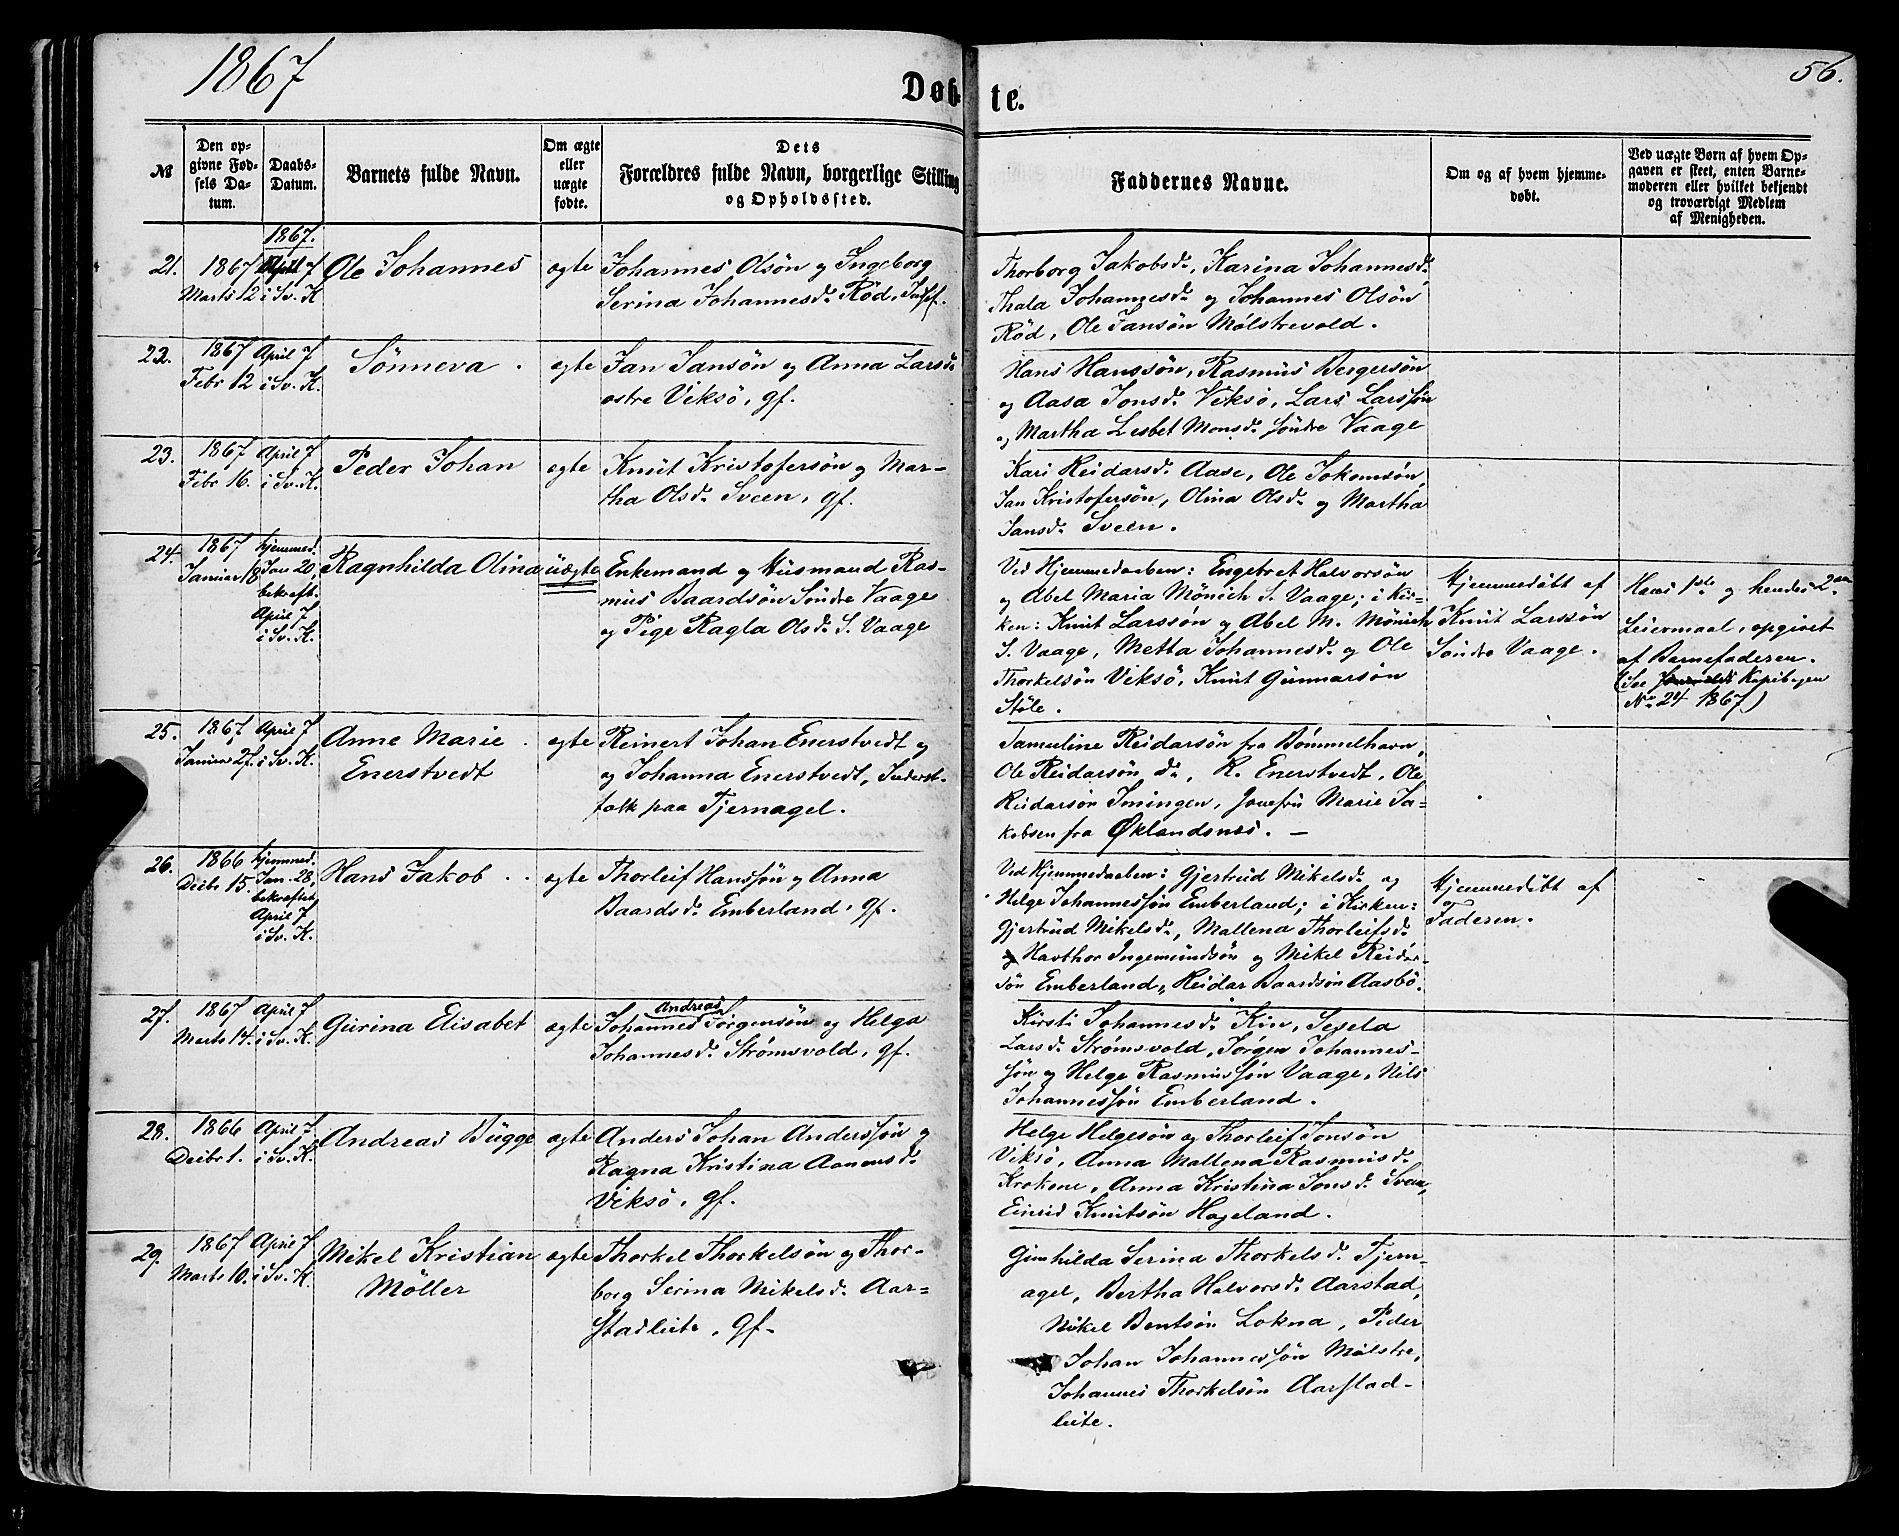 1867
56.
Døbte.
№
Den opgivne Fødsels Datum.
Daabs-Datum.
Barnets fulde Navn.
Om ægte eller uægte fødte.
Dets Forældres fulde Navn, borgerlige Stilling og Opholdssted.
Faddernes Navne.
Om og af hvem hjemmedøbt.
Ved uægte Børn af hvem Opgaven er skeet, enten Barnemoderen eller hvilket bekjendt og troværdigt Medlem af Menigheden.
1867.
21.
1867
Marts 12
April 7
i Sv. K
Ole Johannes
ægte
Johannes Olsön og Ingeborg
Serina Johannesd. Röd, Indsf.
Thorborg Jakobsd., Karina Johannesd.
Thala Johannesd. og Johannes Olsön
Röd, Ole Jansön Mølstrevold.
22.
1867
Febr 12
April 7
i Sv. K.
Sönneva
ægte
Jan Jansön og Anna Larsd.
østre Viksö, gf.
Hans Hanssön, Rasmus Bergersön
og Aasa Jonsd. Viksö, Lars Larssön
og Martha Lesbet Monsd. søndre Vaage
23.
1867
Febr 16.
April 7
i Sv. K.
Peder Johan
ægte
Knut Kristofersön og Mar-
tha Olsd. Sveen, gf.
Kari Reidarsd. Aase, Ole Jokomsön,
Jan Kristofersön, Olina Olsd. og Martha
Jansd. Sveen.
24.
1867
Januar 18
hjemmed.
Jan 20,
bekræft.
April 7
i Sv. K.
Ragnhilda Olina
uægte
Enkemand og Husmand Ras-
mus Baardsön Söndre Vaage
og Pige Ragla Olsd. S. Vaage
Ved Hjemmedaaben: Engebret Halvorsön
og Abel Maria Mönich S. Vaage; i Kir-
ken: Knut Larssön og Abel M. Mönich
S. Vaage, Metta Johannesd. og Ole
Thorkelsön Viksö, Knut Gunnarsön
Støle.
Hjemmedöbt af
Knut Larssön
Söndre Vaage.
Hans 1ste og hendes 2den
Leiermaal, opgivet
af Barnefaderen.
(See Kopibogen
No. 24 1867)
25.
1867
Januar 27.
April 7
i Sv. K.
Anne Marie
Enerstvedt
ægte
Reinert Johan Enerstvedt og
og Johanna Enerstvedt, Inderst-
folk paa Tjernagel.
Tamuline Reidarsön fra Bömmelhavn,
Ole Reidarsön do., R. Enerstvedt, Ole
Reidarsön Imingen, Jomfru Marie Ja-
kobsen fra Øklandsnes. —
26.
1866
Decbr 15.
hjemmed.
Jan. 28,
bekræftet
April 7
i Sv. K.
Hans Jakob
ægte
Thorleif Hanssön og Anna
Baardsd. Emberland, gf.
Ved Hjemmedaaben: Gjertrud Mikelsd. og
Helge Johannessön Emberland; i Kirken:
Gjertrud Mikelsd., Mallena Thorleifsd.
og Havthor Ingemundsön og Mikel Reidar-
sön Emberland, Reidar Baardsön Aasbö.
Hjemmedöbt af
Faderen.
27.
1867
Marts 14.
April 7
i Sv. K.
Gurina Elisabet
ægte
Andreas
Johannes Jörgensön og Helga
Johannesd. Strømsvold, gf.
Kirsti Johannesd. Kin, Sesela
Larsd. Strömsvold, Jörgen Johannes-
sön og Helge Rasmussön Vaage, Nils
Johannessön Emberland.
28.
1866
Decbr 1.
April 7
i Sv. K.
Andreas Bugge
ægte
Anders Johan Anderssön og
Ragna Kristina Aanensd.
Viksö, gf.
Helge Helgesön og Thorleif Jonsön
Viksö, Anna Mallena Rasmusd.
Krokene, Anna Kristina Jonsd. Sveen,
Einrid Knutsön Hageland.
29.
1867
Marts 10.
April 7
i Sv. K.
Mikel Kristian
Möller
ægte
Thorkel Thorkelsön og Thor-
borg Serina Mikelsd. Aar-
stadleite, gf.
Gunhilda Serina Thorkelsd. Tjern-
agel, Bertha Halvorsd. Aarstad,
Mikel Bentsön Lokna, Peder
Johan Johannessön Mølstre,
Johannes Thorkelsön Aarstad-
leite.